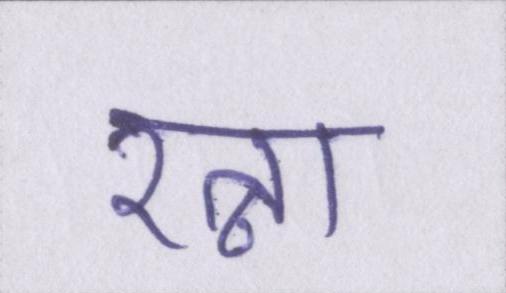 रत्ना